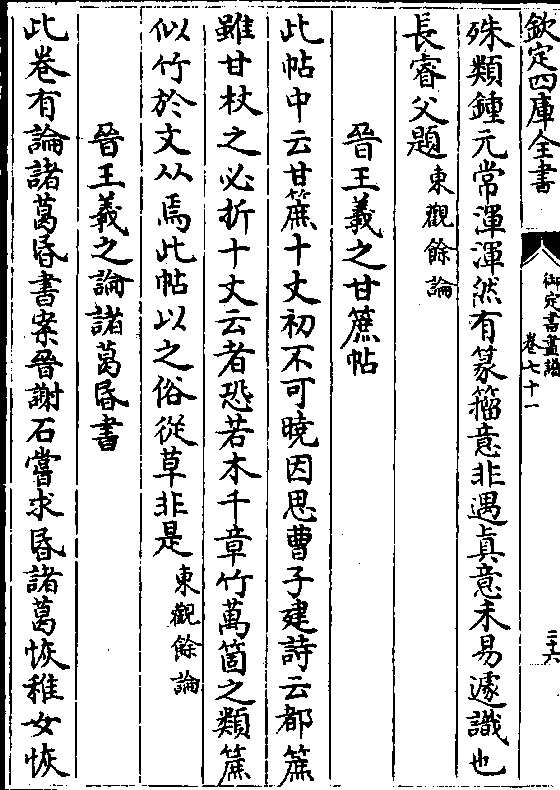 欽定四庫全書
御定書畫譜
卷七十一
三十六
殊類鍾元常渾渾然有篆籀意非遇真意未易遽識也
長睿父題東觀餘論
晉王羲之甘蔗帖
此帖中云甘蔗十丈初不可曉因思曹子建詩云都蔗
雖甘杖之必折十丈云者恐若木千章竹萬箇之類蔗
似竹於文从焉此帖以之俗從草非是東觀餘論
晉王羲之論諸葛昏書
此卷有論諸葛昏書案晉謝石嘗求昏諸葛恢稚女恢